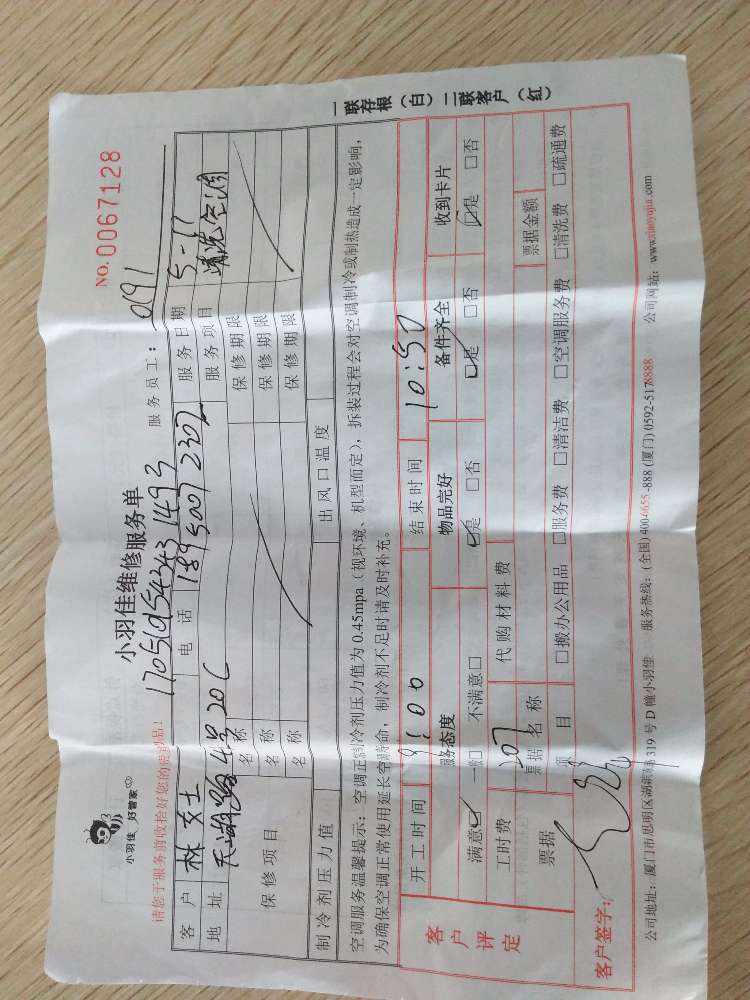 小羽佳 好管家
小羽佳维修服务单
NO. 0067128
请您于服务前收拾好您的贵重物品!
170519542431493
服务员工: 0191
客户 林女士 电话 18950072302 服务日期 5-17
地址 4号20C 服务项目 清洗空调
保修项目
名称 保修期限
名称 保修期限
名称 保修期限
制冷剂压力值 出风口温度
空调服务温馨提示:空调正常制冷剂压力值为0.45mpa(视环境、机型而定),拆装过程会对空调制冷或制热造成一定影响,
为确保空调正常使用延长空调寿命,制冷剂不足时请及时补充。
客户评定
开工时间 9:00 结束时间 10:50
服务态度 物品完好 备件齐全 收到卡片
满意☑ 一般□ 不满意□ ☑是 □否 ☑是 □否 ☑是 □否
工时费 207 代购材料费
票据 票据名称 票据金额
项目 □搬办公用品 □服务费 □清洁费 □空调服务费 □清洗费 □疏通费
客户签字:
公司地址:厦门市思明区湖滨 319号D幢小羽佳 服务热线:(全国)4004655-888 (厦门)0592-5178888 公司网站:www.xiaoyujia.com
一联存根(白)二联客户(红)